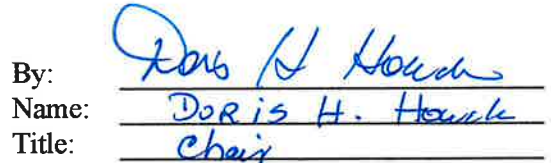 By: Doris H Houck
Name: Doris H. Houck
Title: Chair